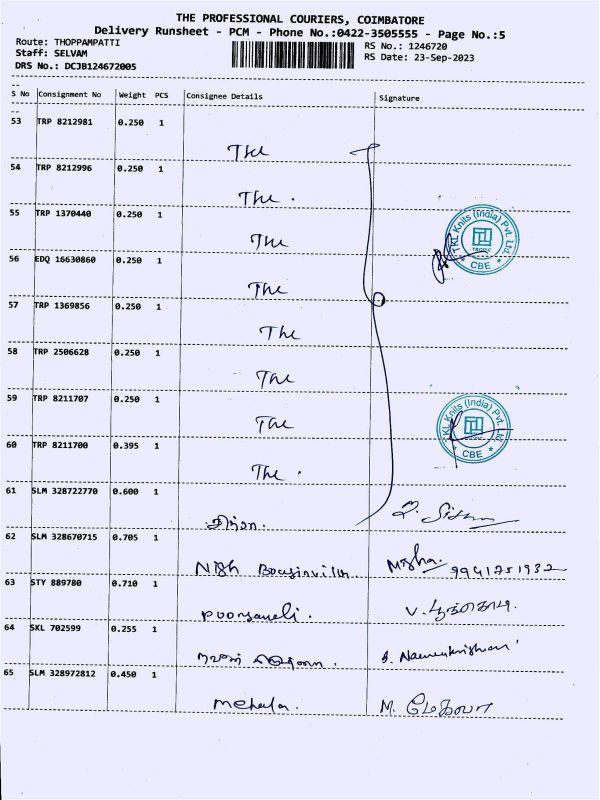 THE PROFESSIONAL COURIERS, COIMBATORE
Delivery Runsheet - PCM - Phone No.:0422-3505555 - Page No.:5
Route: THOPPAMPATTI RS No.: 1246720
Staff: SELVAM RS Date: 23-Sep-2023
DRS No.: DCJB124672005
S No Consignment No Weight PCS Consignee Details Signature
53 TRP 8212981 0.250 1
The
54 TRP 8212996 0.250 1
The .
55 TRP 1370440 0.250 1
The
TKL Knits (India) Pvt. Ltd.
* CBE *
56 EDQ 16630860 0.250 1
The
57 TRP 1369856 0.250 1
The
58 TRP 2506628 0.250 1
The
59 TRP 8211707 0.250 1
The
TKL Knits (India) Pvt. Ltd.
* CBE *
60 TRP 8211700 0.395 1
The .
61 SLM 328722770 0.600 1
62 SLM 328670715 0.705 1
Nish Misha. 9941251932
63 STY 889780 0.710 1
V.
64 SKL 702599 0.255 1
65 SLM 328972812 0.450 1
Mehala. M. மேகலா